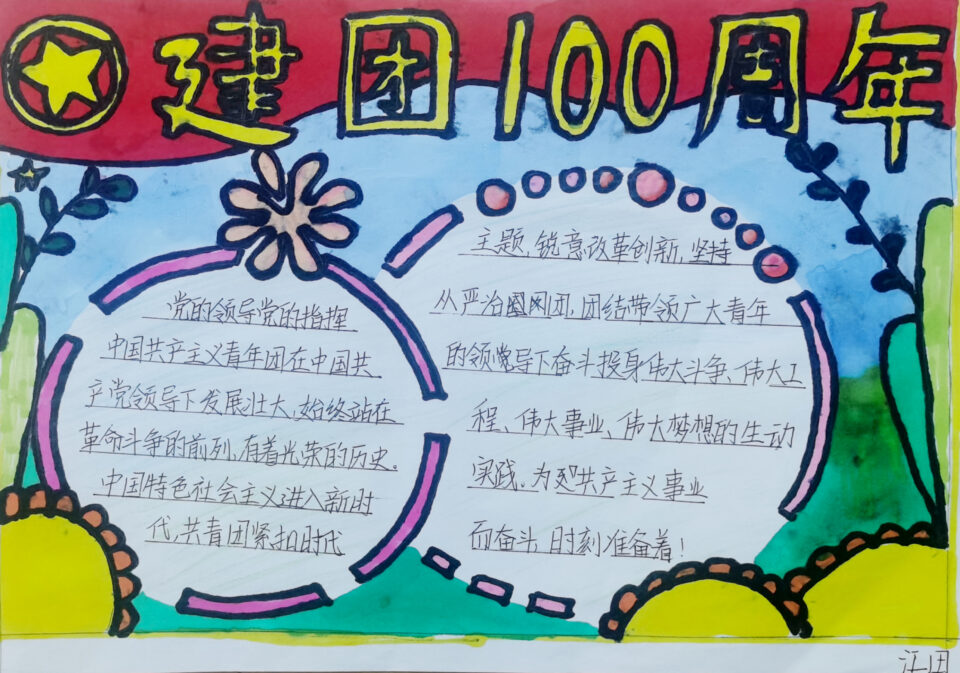 建团100周年
党的领导党的指挥
中国共产主义青年团在中国共
产党领导下发展壮大,始终站在
革命斗争的前列,有着光荣的历史。
中国特色社会主义进入新时
代,共青团紧扣时代
主题,锐意改革创新,坚持
从严治团,团结带领广大青年
的领导下奋斗投身伟大斗争、伟大工
程、伟大事业、伟大梦想的生动
实践。为共产主义事业
而奋斗,时刻准备着!
江田